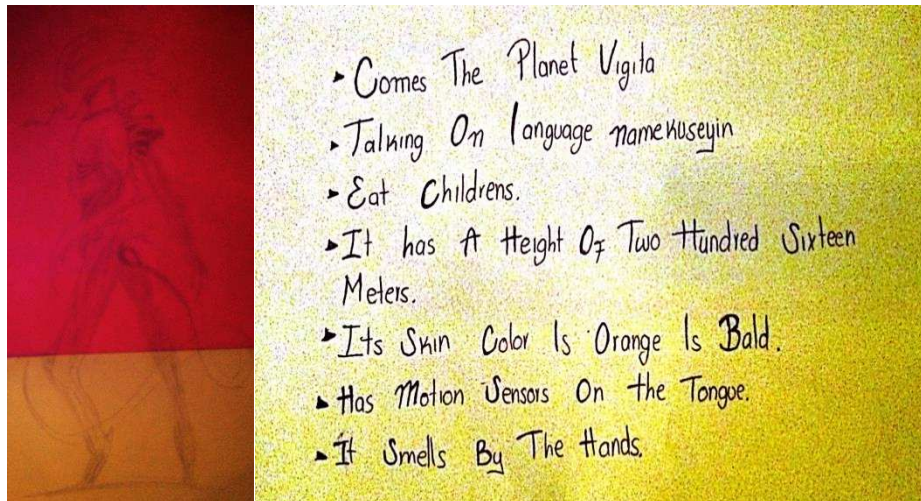 ▸ Comes The Planet Vigita
▸ Talking On language namekuseyin
▸ Eat Childrens.
▸ It has A Height Of Two Hundred Sixteen
Meters.
▸ Its Skin Color Is Orange Is Bald.
▸ Has Motion Sensors On the Tongue.
▸ It Smells By The Hands.